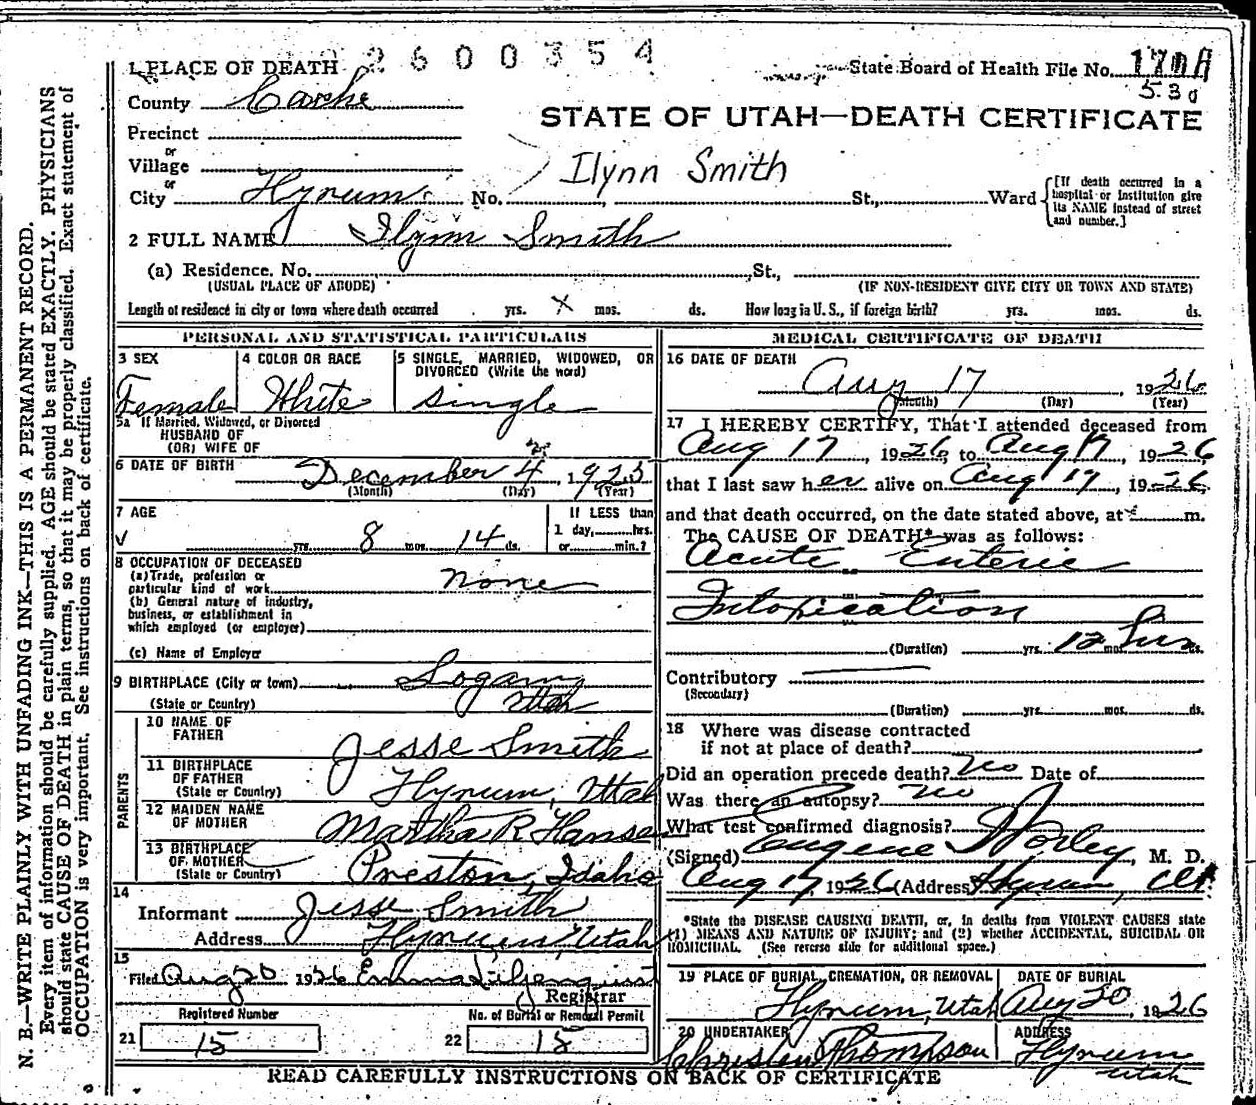 2600354
1 PLACE OF DEATH
State Board of Health File No. 170A
530
County Cache
STATE OF UTAH—DEATH CERTIFICATE
Precinct
or
Village
Ilynn Smith
or
City Hyrum No. St., Ward
[If death occurred in a hospital or institution give its NAME instead of street and number.]
2 FULL NAME Ilynn Smith
(a) Residence. No. St.,
(USUAL PLACE OF ABODE) (IF NON-RESIDENT GIVE CITY OR TOWN AND STATE)
Length of residence in city or town where death occurred yrs. X mos. ds. How long in U. S., if foreign birth? yrs. mos. ds.
PERSONAL AND STATISTICAL PARTICULARS
3 SEX
Female
4 COLOR OR RACE
White
5 SINGLE, MARRIED, WIDOWED, OR DIVORCED (Write the word)
Single
5a If Married, Widowed, or Divorced
HUSBAND OF
(OR) WIFE OF
6 DATE OF BIRTH December 4, 1925
(Month) (Day) (Year)
7 AGE
yrs. 8 mos. 14 ds.
If LESS than
1 day, hrs.
or min.?
8 OCCUPATION OF DECEASED
(a) Trade, profession or
particular kind of work none
(b) General nature of industry,
business, or establishment in
which employed (or employer)
(c) Name of Employer
9 BIRTHPLACE (City or town) Logan
(State or Country) Utah
PARENTS
10 NAME OF
FATHER Jesse Smith
11 BIRTHPLACE
OF FATHER
(State or Country) Hyrum, Utah
12 MAIDEN NAME
OF MOTHER Martha R Hansen
13 BIRTHPLACE
OF MOTHER
(State or Country) Preston, Idaho
14
Informant Jesse Smith
Address Hyrum, Utah
15
Filed Aug 20 1926 Emma Liljenquist
Registrar
Registered Number No. of Burial or Removal Permit
21 15 22 15
MEDICAL CERTIFICATE OF DEATH
16 DATE OF DEATH
Aug 17 1926
(Month) (Day) (Year)
17 I HEREBY CERTIFY, That I attended deceased from
Aug 17, 1926, to Aug 17, 1926
that I last saw her alive on Aug 17, 1926
and that death occurred, on the date stated above, at m.
The CAUSE OF DEATH* was as follows:
Acute Enteric
Intoxication
(Duration) yrs. 12 mos. hrs ds.
Contributory
(Secondary)
(Duration) yrs. mos. ds.
18 Where was disease contracted
if not at place of death?
Did an operation precede death? No Date of
Was there an autopsy? No
What test confirmed diagnosis?
(Signed) Eugene Worley, M. D.
Aug 17, 1926 (Address) Hyrum, Ut.
*State the DISEASE CAUSING DEATH, or, in deaths from VIOLENT CAUSES state
(1) MEANS AND NATURE OF INJURY; and (2) whether ACCIDENTAL, SUICIDAL OR
HOMICIDAL. (See reverse side for additional space.)
19 PLACE OF BURIAL, CREMATION, OR REMOVAL
Hyrum, Utah
DATE OF BURIAL
Aug 20, 1926
20 UNDERTAKER
Christen Thompson
ADDRESS
Hyrum
Utah
READ CAREFULLY INSTRUCTIONS ON BACK OF CERTIFICATE
N. B.—WRITE PLAINLY WITH UNFADING INK—THIS IS A PERMANENT RECORD.
Every item of information should be carefully supplied. AGE should be stated EXACTLY. PHYSICIANS
should state CAUSE OF DEATH in plain terms, so that it may be properly classified. Exact statement of
OCCUPATION is very important. See instructions on back of certificate.